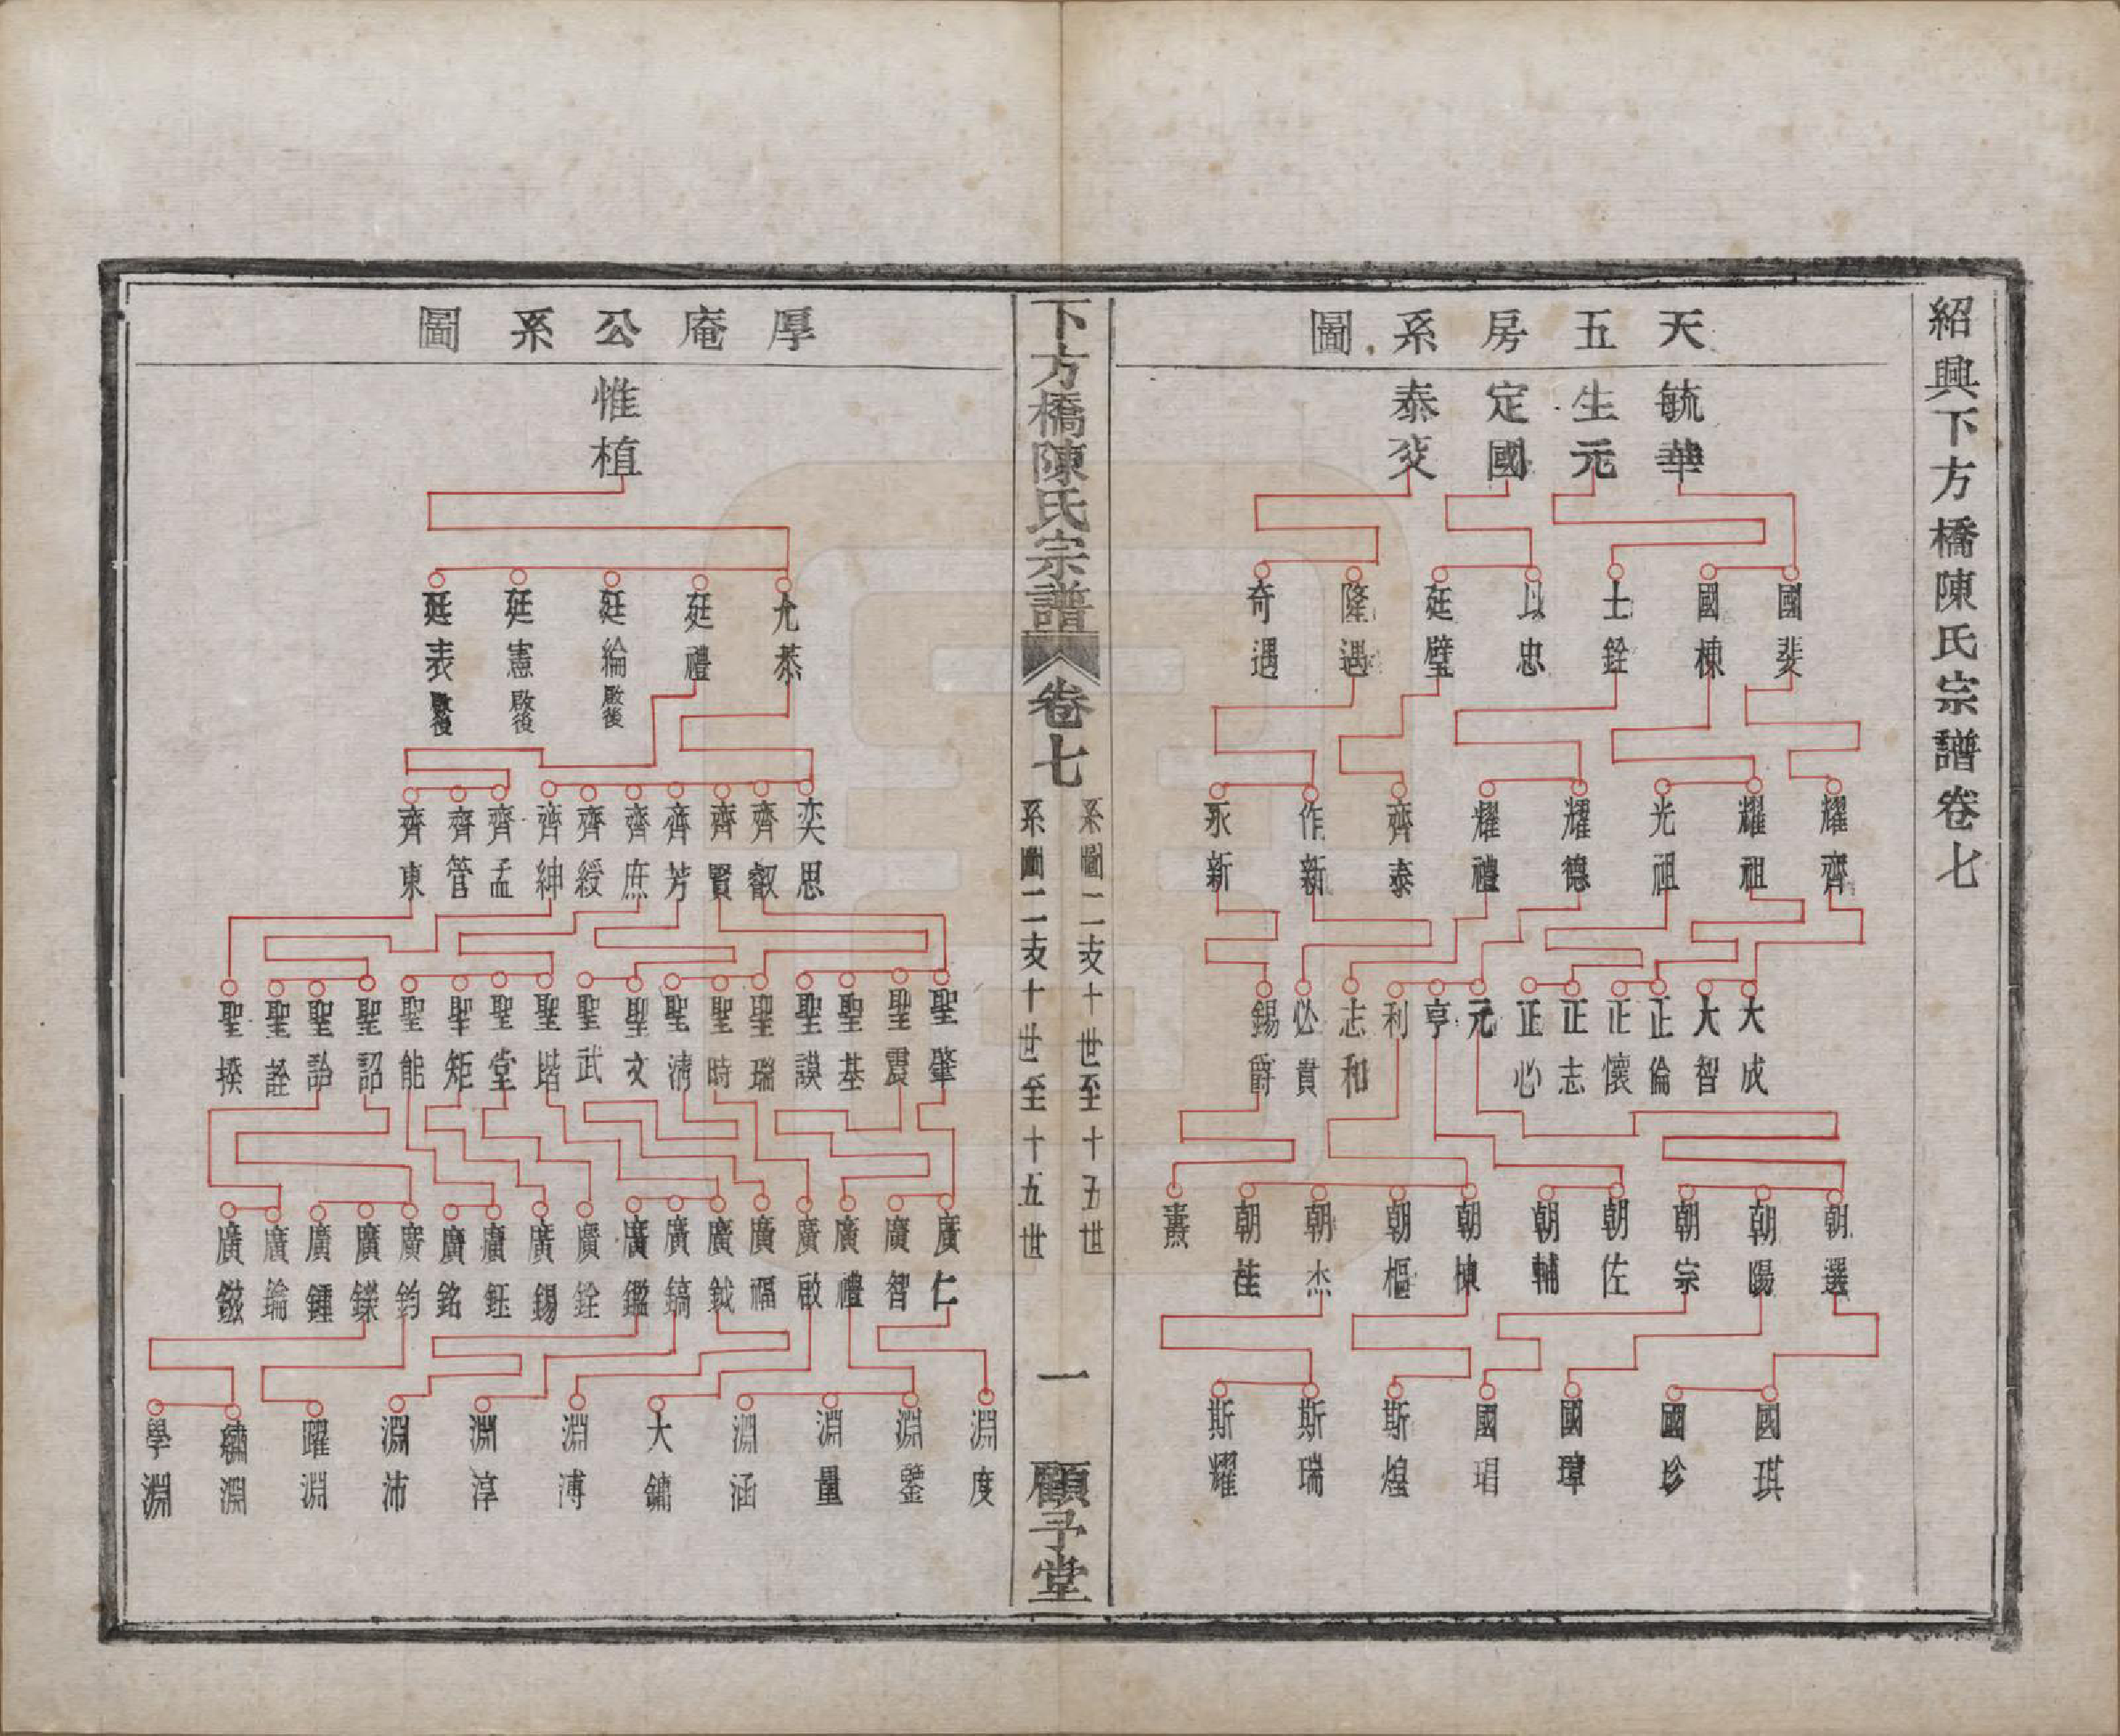 紹興下方橋陳氏宗譜卷七
天五房系圖
毓華 生元 定國 泰交
國斐 國棟 士銓 以忠 廷璧 隆遇 奇遇
耀齊 耀祖 光祖 耀德 耀禮 齊泰 作新 永新
大成 大智 正倫 正懷 正志 正心 元 亨 利 志和 必貴 錫爵
朝選 朝陽 朝宗 朝佐 朝輔 朝棟 朝樞 朝杰 朝桂 燾
國琪 國珍 國瑋 國琩 斯煌 斯瑞 斯耀
下方橋陳氏宗譜
卷七
系圖二支十世至十五世
系圖二支十世至十五世
一
顧予堂
厚庵公系圖
惟植
允恭 廷禮 廷綸啟後 廷憲啟後 廷表啟後
奕思 齊叡 齊賢 齊芳 齊庶 齊綬 齊紳 齊孟 齊管 齊東
聖肇 聖震 聖基 聖謨 聖瑞 聖時 聖淸 聖文 聖武 聖堦 聖堂 聖矩 聖能 聖詔 聖詒 聖詮 聖揆
廣仁 廣智 廣禮 廣啟 廣福 廣鉞 廣鎬 廣鑑 廣銓 廣錫 廣鈺 廣銘 廣鈞 廣鑅 廣鍾 廣錀 廣鎡
淵度 淵鑒 淵量 淵涵 大鏞 淵溥 淵淳 淵沛 躍淵 繡淵 學淵